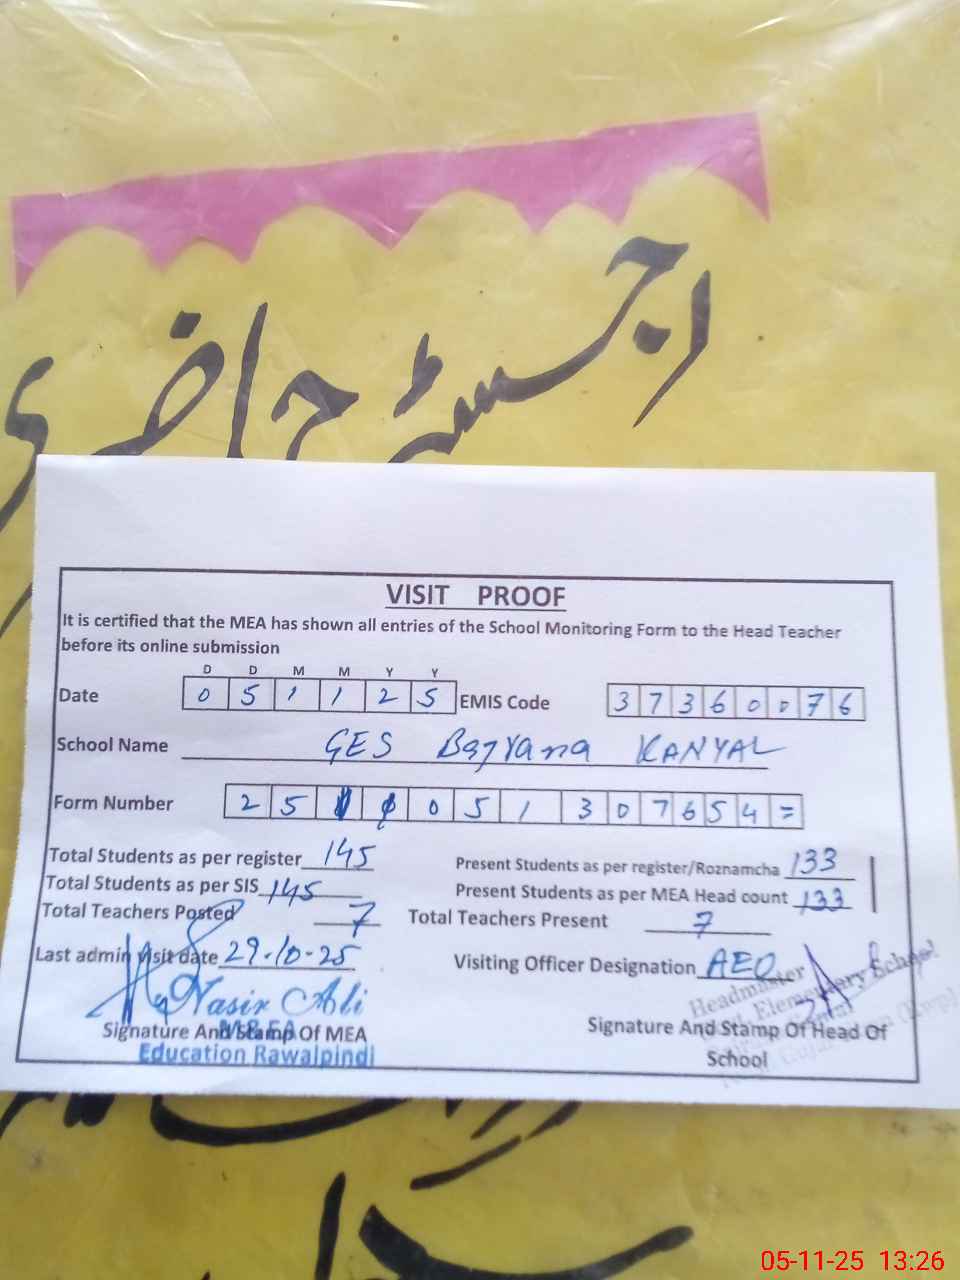 رجسٹر حاضری
VISIT PROOF
It is certified that the MEA has shown all entries of the School Monitoring Form to the Head Teacher
before its online submission
D D M M Y Y
Date 0 5 1 1 2 5 EMIS Code 3 7 3 6 0 0 7 6
School Name GES Bagyana KANYAL
Form Number 2 5 1 1 0 5 1 3 0 7 6 5 4 =
Total Students as per register 145 Present Students as per register/Roznamcha 133
Total Students as per SIS 145 Present Students as per MEA Head count 133
Total Teachers Posted 7 Total Teachers Present 7
Last admin visit date 29-10-25 Visiting Officer Designation AEO
Nasir Ali
Headmaster
Elementary School
Signature And Stamp Of MEA Signature And Stamp Of Head Of
School
Education Rawalpindi
05-11-25 13:26